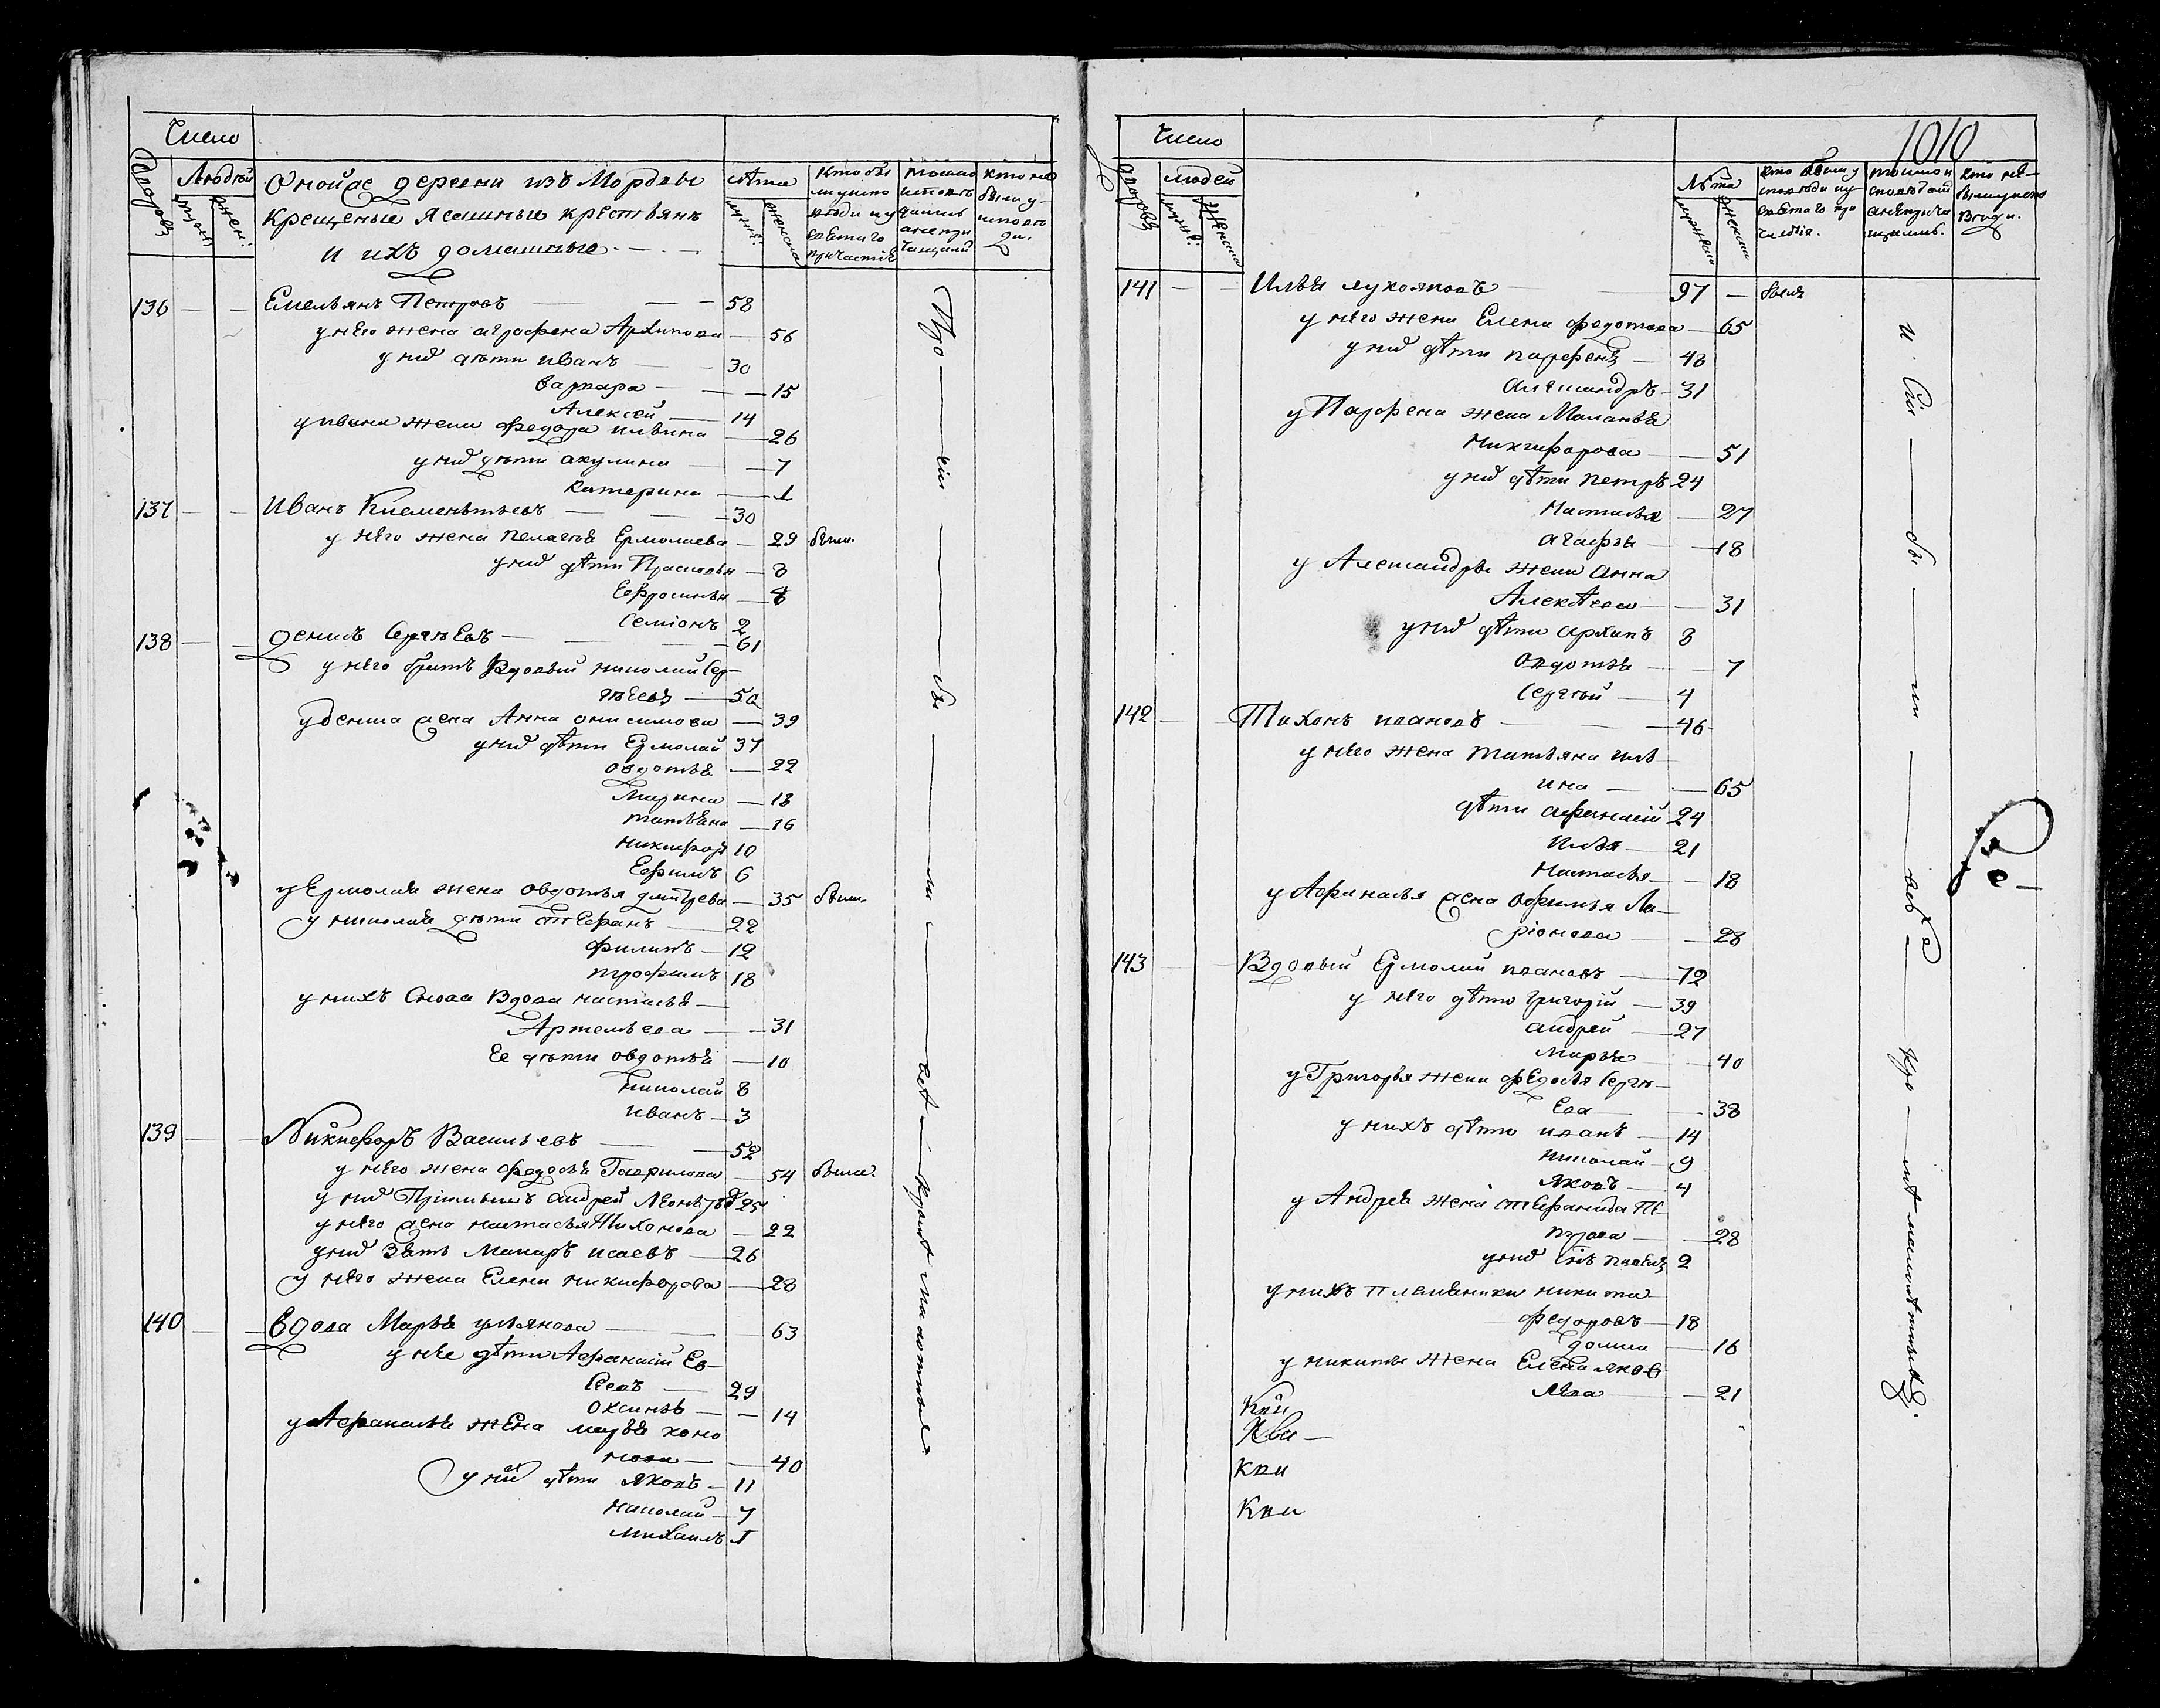 Число
Дворовъ
Людей
мужес:
женс:
Оной же деревни изъ Мордвы
крещеные ясашные крестьянъ
и ихъ домашные
лѣта
мужес:
женска
кто бы
ли у испо
вѣди и у
святаго
причастія
токмо
исповѣ
дались
а не при
чащались
кто не
были у
исповѣ
ди.
136 Емельянъ Петровъ — 58
у него жена аграфена Архипова — 56
у нихъ дѣти иванъ — 30
варвара — 15
Алексей — 14
у ивана жена федора ильина — 26
у нихъ дѣти акулина — 7
катерина — 1
137 Иванъ Клементьевъ — 30
у него жена пелагея Ермолаева — 29 были.
у нихъ дѣти Прасковья — 8
Ефросинья — 4
Семіонъ 2
138 Денисъ Сергѣевъ — 61
у него братъ Вдовый николай Сер-
гѣевъ — 50
у дениса жена Анна онисимова — 39
у нихъ дѣти Ермолай 37
овдотья — 22
Марина — 18
татьяна — 16
никифоръ 10
Ефимъ 6
у Ермолая жена овдотья дмитрева — 35 были.
у николая дѣти стефанъ — 22
филипъ — 19
трофимъ 18
у нихъ Сноха Вдова настасья —
Артемьева — 31
Ее дѣти овдотья — 10
николай 8
иванъ — 3
139 Никифоръ Васильевъ — 52
у него жена федосья Гаврилова — 54 были.
у нихъ Пріимышъ андрей Леонтьевъ 25
у него жена настасья Тихонова — 22
у нихъ Зять Макаръ исаевъ — 26
у него жена Елена никифорова — 28
140 Вдова Марья ульянова — 63
у нее дѣти Афанасій Ев-
сеевъ — 29
Оксинья — 14
у Афанасья жена марья хомо
нова — 40
у ней дѣти яковъ — 11
николай — 7
михаилъ 1
Про — сіи — бы — ли — всѣ — кромѣ малолѣтныхъ
Число
1010
дворовъ
людей
мужс:
женска
Лѣта
мужска
женска
кто были у
исповѣди и у
святаго при
частія.
токмо и
сповѣдали
а не прича
щались.
кто не
были у испо
вѣди.
141 Илья лукояновъ — 97 — были
у него жена Елена федотова — 65
у нихъ дѣти парфенъ — 48
Александръ — 31
у Парфена жена Маланья
никифорова — 51
у нихъ дѣти петръ 24
Настасья — 27
агафья — 18
у Александра жена анна
Алексѣева — 31
у нихъ дѣти архипъ 8
Овдотья — 7
Сергѣй — 4
142 Тихонъ ивановъ — 46
у него жена татьяна иль
ина — 65
дѣти афанасій 24
Илья — 21
Настасья — 18
у Афанасья жена офимья Ла-
ріонова — 28
143 Вдовый Ермолай ивановъ — 72
у него дѣти григорій — 39
андрей — 27
марья — 40
у Григорья жена федосья Сергѣ-
Ева — 38
у нихъ дѣти иванъ — 14
николай — 9
яковъ — 4
у Андрея жена стефанида Пе
трова — 28
у нихъ сынъ павелъ 2
у нихъ племяники никита
федоровъ — 18
домна — 16
у никиты жена Елена яков
лева — 21
и сіи — бы — ли — всѣ — кро — мѣ малолѣтныхъ.